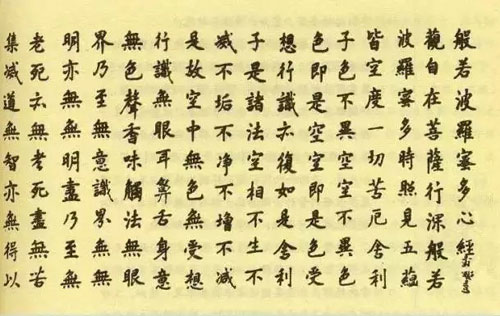 般若波羅蜜多心經
觀自在菩薩行深般若
波羅蜜多時照見五蘊
皆空度一切苦厄舍利
子色不異空空不異色
色即是空空即是色受
想行識亦復如是舍利
子是諸法空相不生不
滅不垢不净不增不减
是故空中無色無受想
行識無眼耳鼻舌身意
無色聲香味觸法無眼
界乃至無意識界無無
明亦無無明盡乃至無
老死亦無老死盡無苦
集滅道無智亦無得以